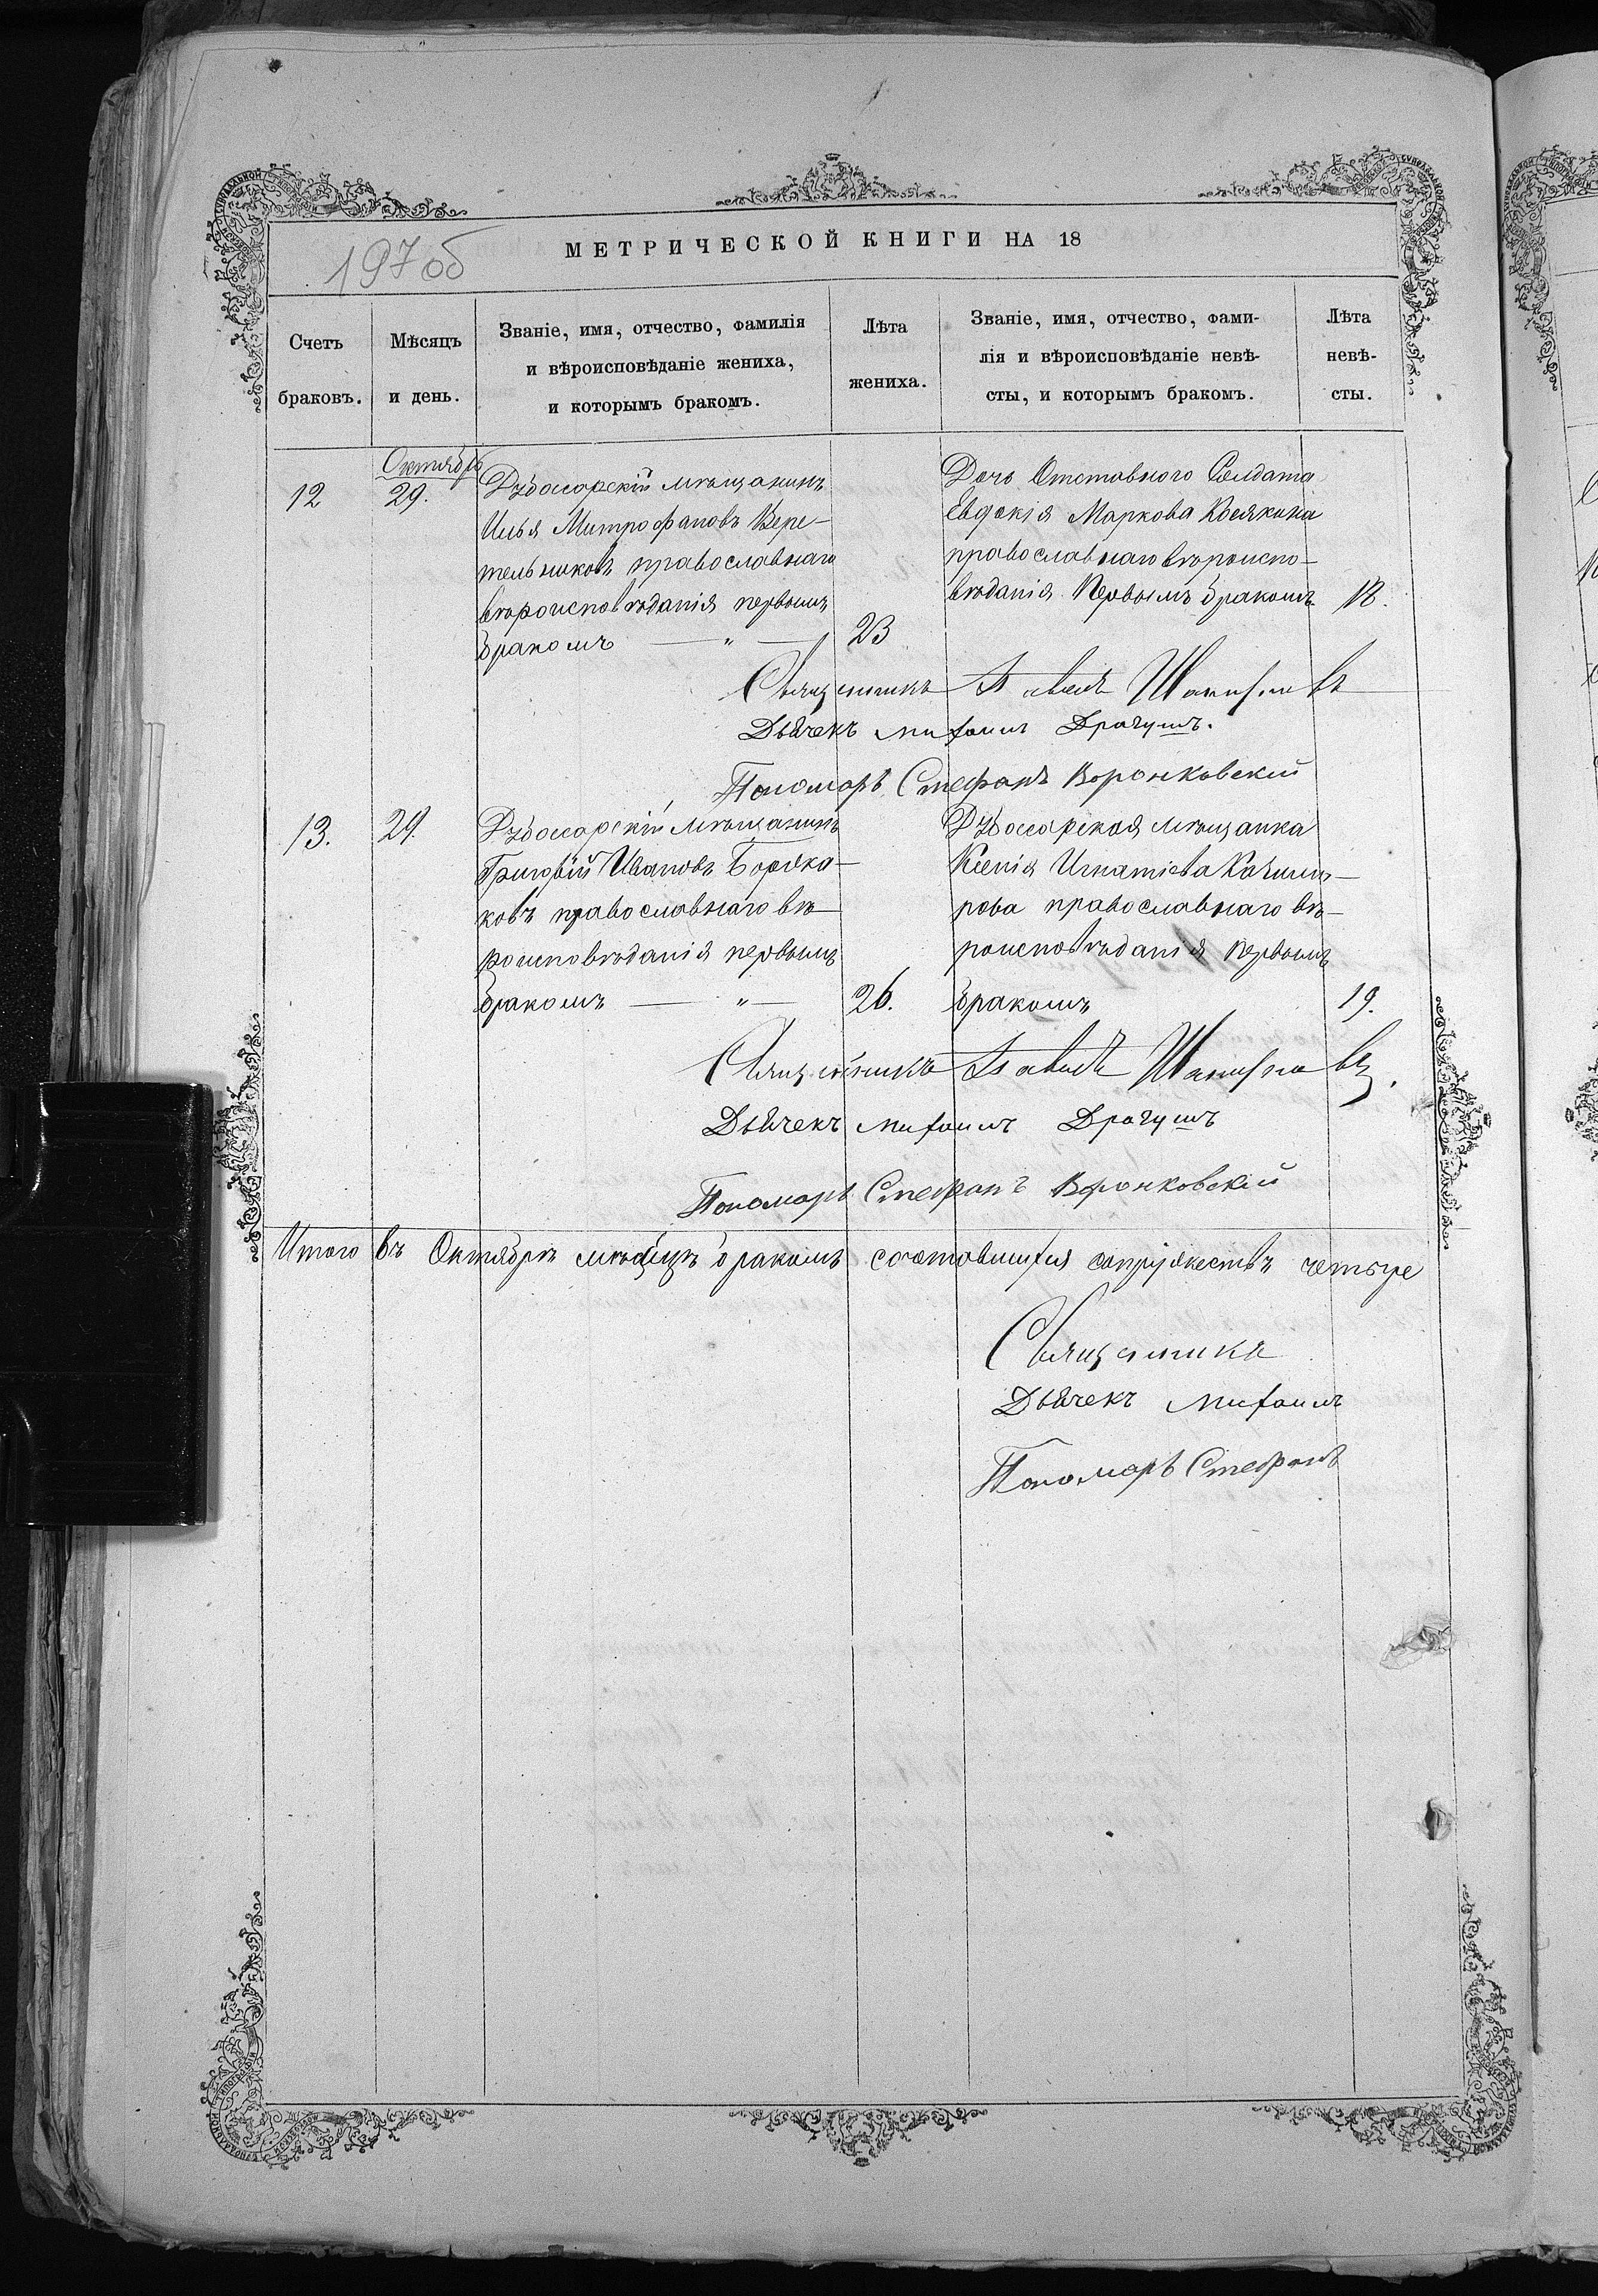 197об
МЕТРИЧЕСКОЙ КНИГИ НА 18
Счетъ
браковъ.
Мѣсяцъ
и день.
Званіе, имя, отчество, фамилія
и вѣроисповѣданіе жениха,
и которымъ бракомъ.
Лѣта
жениха.
Званіе, имя, отчество, фами-
лія и вѣроисповѣданіе невѣ-
сты, и которымъ бракомъ.
Лѣта
невѣ-
сты.
Октябрь
12
29.
Дубосарскій мѣщанинъ
Илья Митрофановъ Вере-
тельниковъ православнаго
вѣроисповѣданія первымъ
бракомъ — „ —
23
Дочь Отставного Солдата
Евдокія Маркова Косякина
православнаго вѣроиспо-
вѣданія Первымъ бракомъ
18.
Священникъ Павелъ
Дьячекъ Михаилъ Драгушъ.
Пономарь Стефанъ Воронковскій
13.
29.
Дубоссарскій мѣщанинъ
Григорій Ивановъ
ковъ православнаго вѣ-
роисповѣданія первымъ
бракомъ — „ —
26.
Дубоссарская мѣщанка
Ксенія Игнатіева
рова православнаго вѣ-
роисповѣданія Первымъ
бракомъ
19.
Священникъ Павелъ
Дьячекъ Михаилъ Драгушъ
Пономарь Стефанъ Воронковскій
Итого въ Октябрѣ мѣсяцѣ бракомъ сочетавшихся супружествъ четыре
Священникъ
Дьячекъ Михаилъ
Пономарь Стефанъ